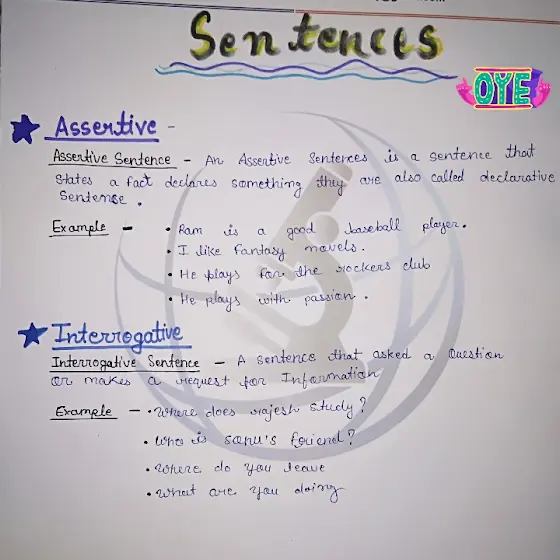 Sentences
OYE
Assertive -
Assertive Sentence - An Assertive Sentences is a sentence that
states a fact declares something they are also called declarative
Sentense .
Example - • Ram is a good baseball player.
• I like fantasy novels.
• He plays for the rockers club
• He plays with passion .
Interrogative
Interrogative Sentence - A sentence that asked a Question
or makes a request for Information
Example - • Where does rajesh study?
• Who is sonu's friend?
• Where do you leave
• What are you doing